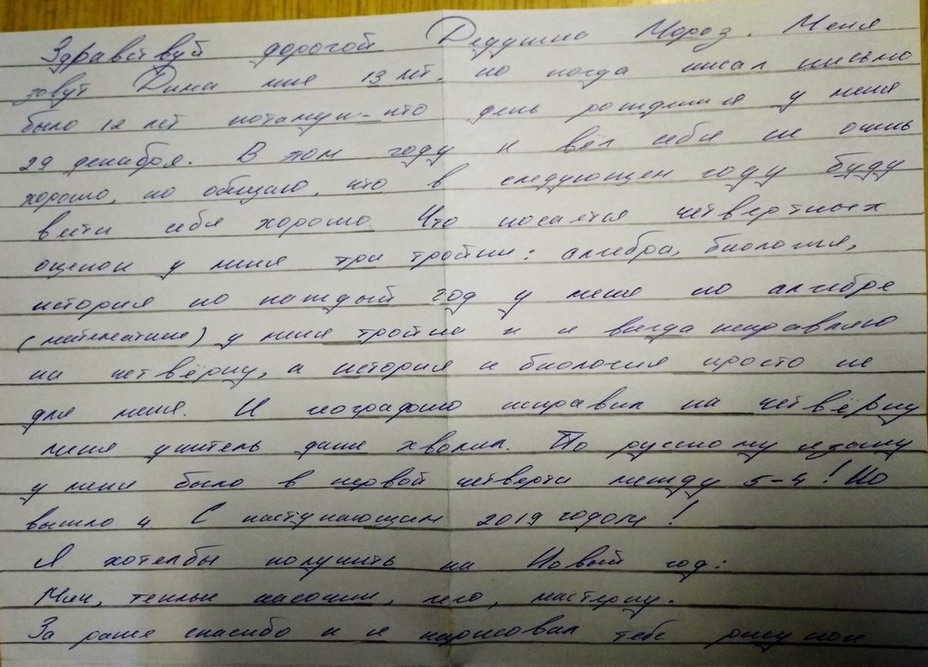 Здравствуй дорогой Дедушка Мороз. Меня
зовут Дима мне 13 лет, но когда писал письмо
было 12 лет потамук-что день рождения у меня
29 декабря. В том году я вёл себя не очень
хорошо, но обещаю, что в следующем году буду
вести себя хорошо. Что касается четвертных
оценок у меня три тройки: алгебра, биология,
история но каждый год у меня по алгебре
(математике) у меня тройка и я всегда исправляю
на четвёрку, а история и биология просто не
для меня. И географию исправил на четвёрку
меня учитель даже хвалил. По русскому языку
у меня было в первой четверти между 5-4! Но
вышло 4 С наступающим 2019 годом!
Я хотелбы получить на Новый год:
Мяч, теплые носочки, лего, мастерку.
За ранее спасибо и я нарисовал тебе рисунок